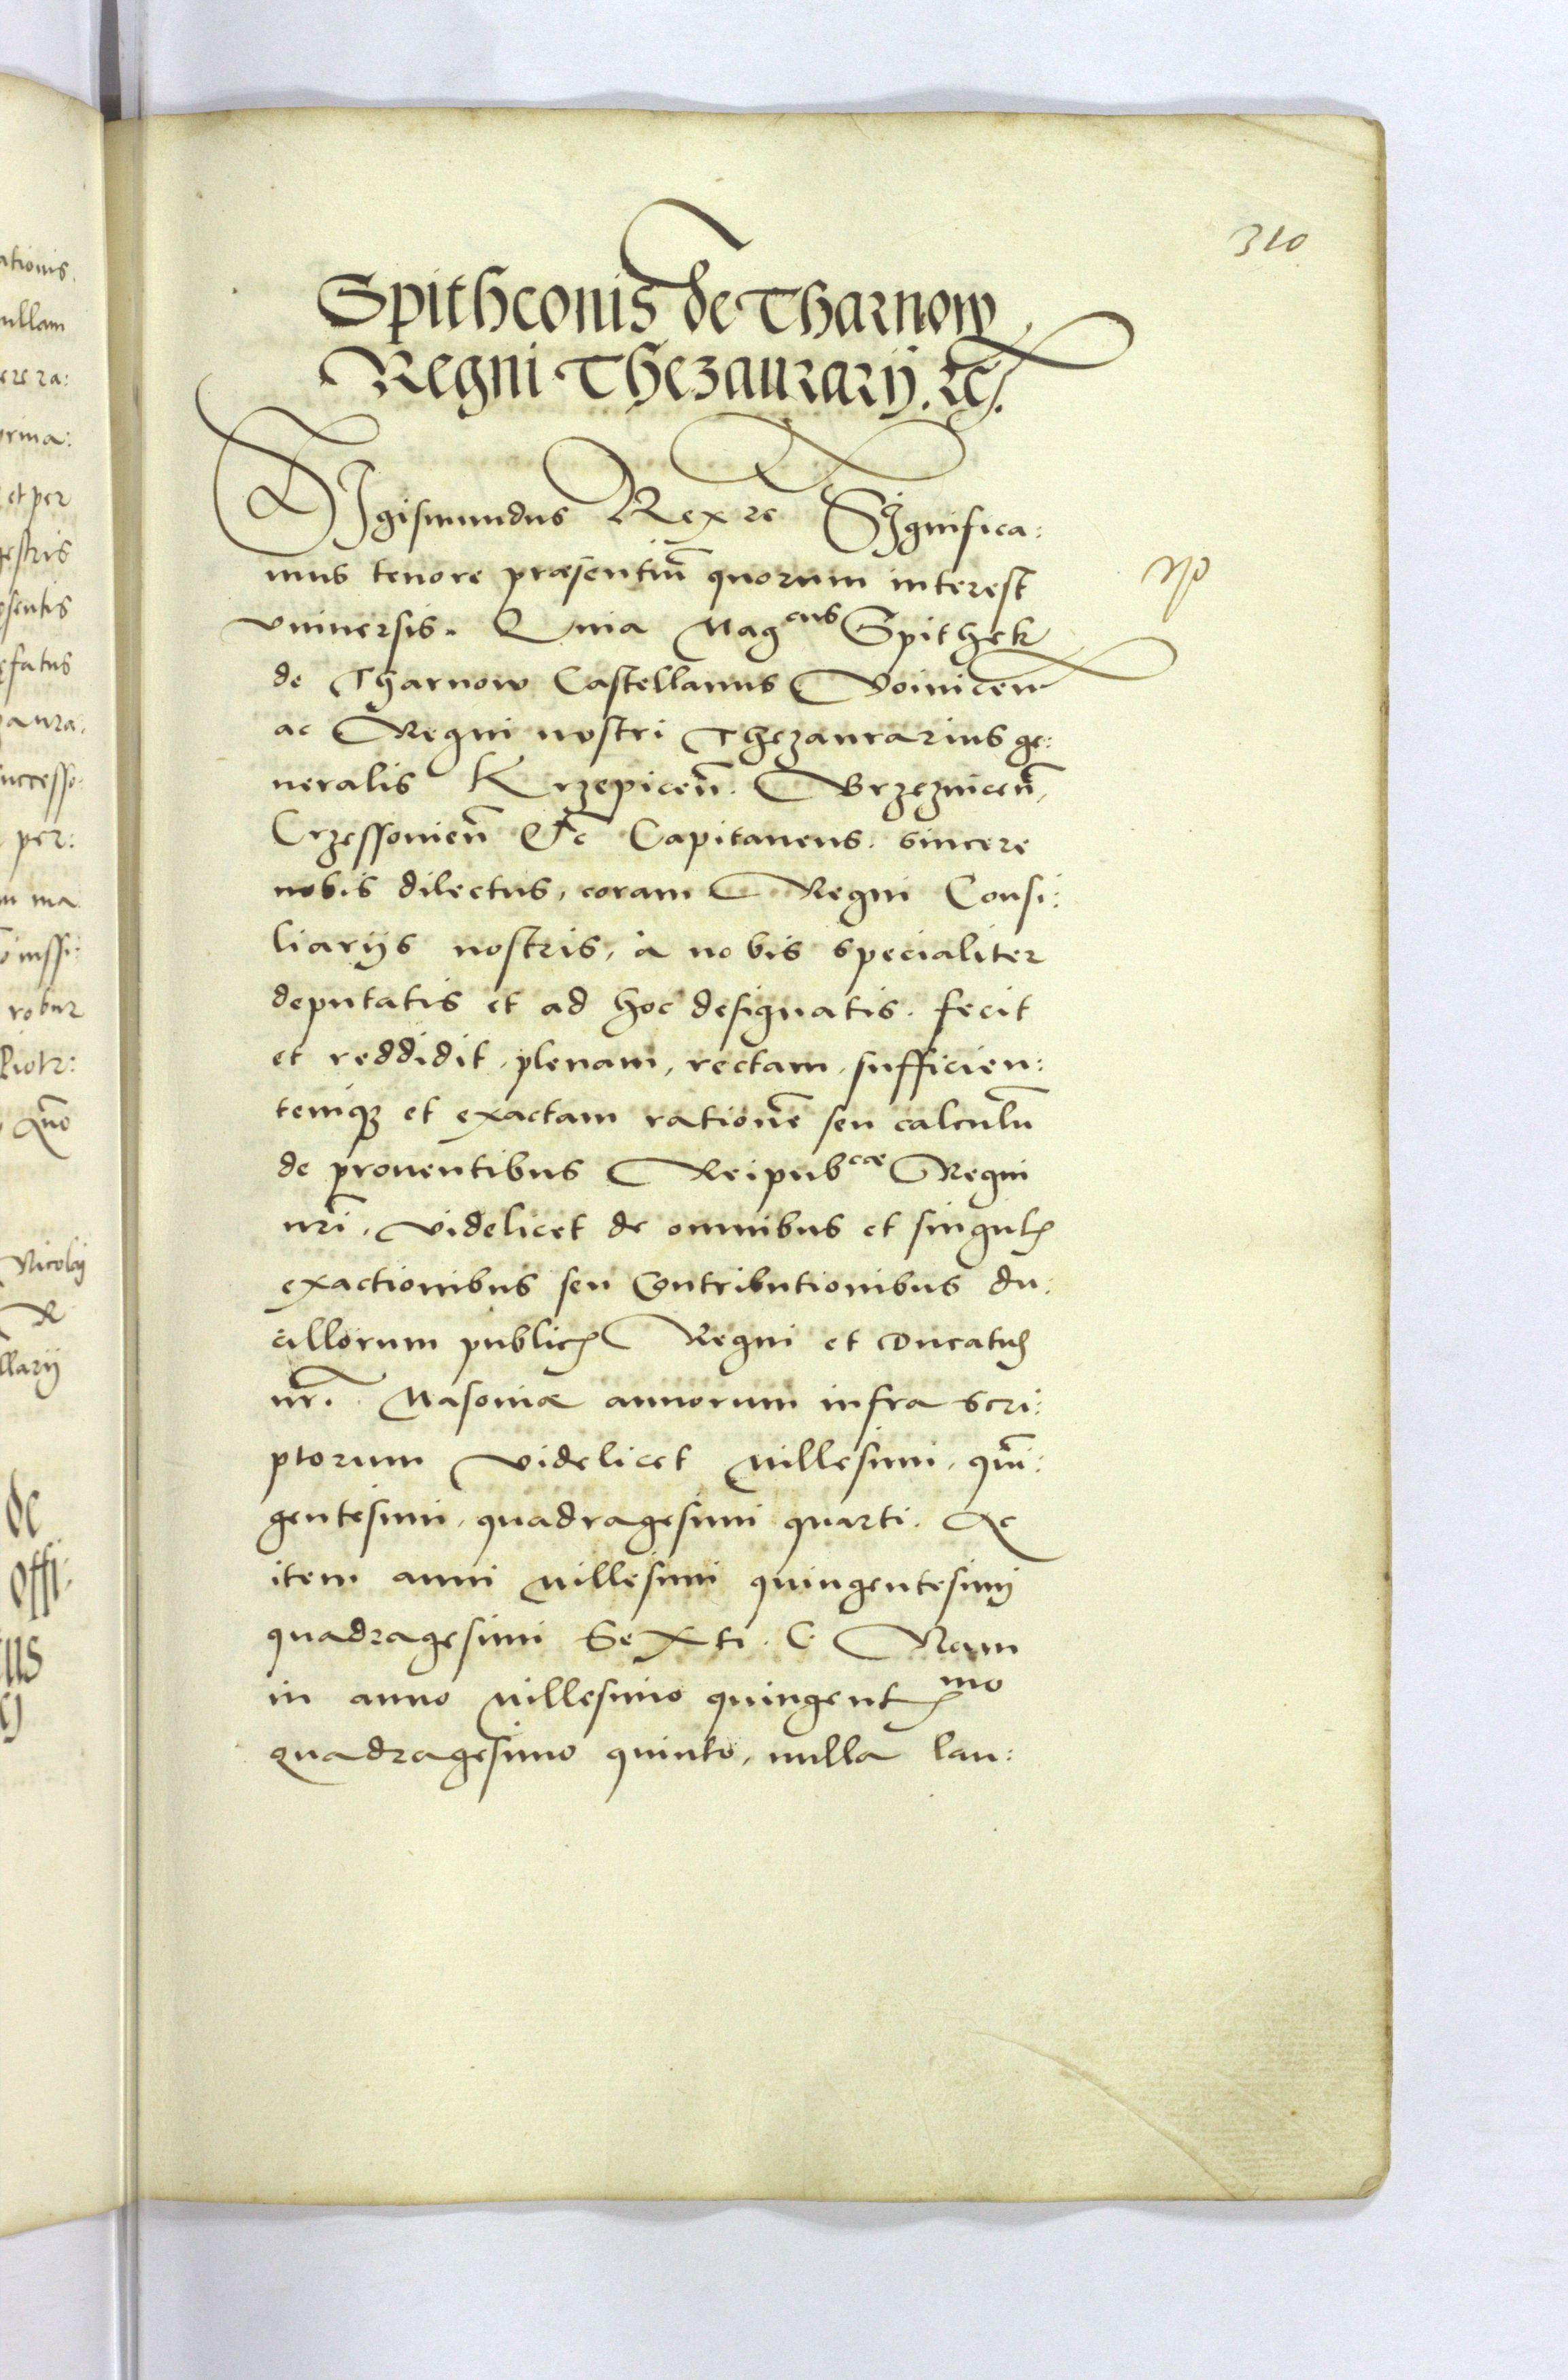 310
Spithconis de Tharnow
Regni Thezaurarij. etc.
SIgismundus Rex etc Significa:
mus tenore præsentiū quorum interest
vniuersis. Quia Magcus Spithek
de Tharnow Castellanus Voinicen
ac Regni nostri Thezaurarius ge:
neralis Krzepiceñ. Brzezniceñ,
Crzessouieñ &c Capitaneus. sincere
nobis dilectus, coram Regni Consi:
liarijs nostris, à nobis specialiter
deputatis et ad hoc designatis. fecit
et reddidit, plenam, rectam, sufficien:
temq3 et exactam rationē seu calculū
de prouentibus Reipubcæ Regni
nrī, videlicet de omnibus et singul
exactionibus seu Contributionibus du:
cillorum public Regni et Ducatus
nr̄i. Masouiæ annorum infra scri:
ptorum videlicet Millesimi, qūi:
gentesimi, quadragesimi quarti. Ac
item anni Millesimi quingentesimj
quadragesimi Sexti. Nam
in anno Millesimo quingentmo
quadragesimo quinto, nulla lau:
ationis.
nullam
rma:
et per
estris
sentis
efatus
aura:
successo:
per:
ma
robur
Piotr:
Nicolaj
llarij
de
offi: